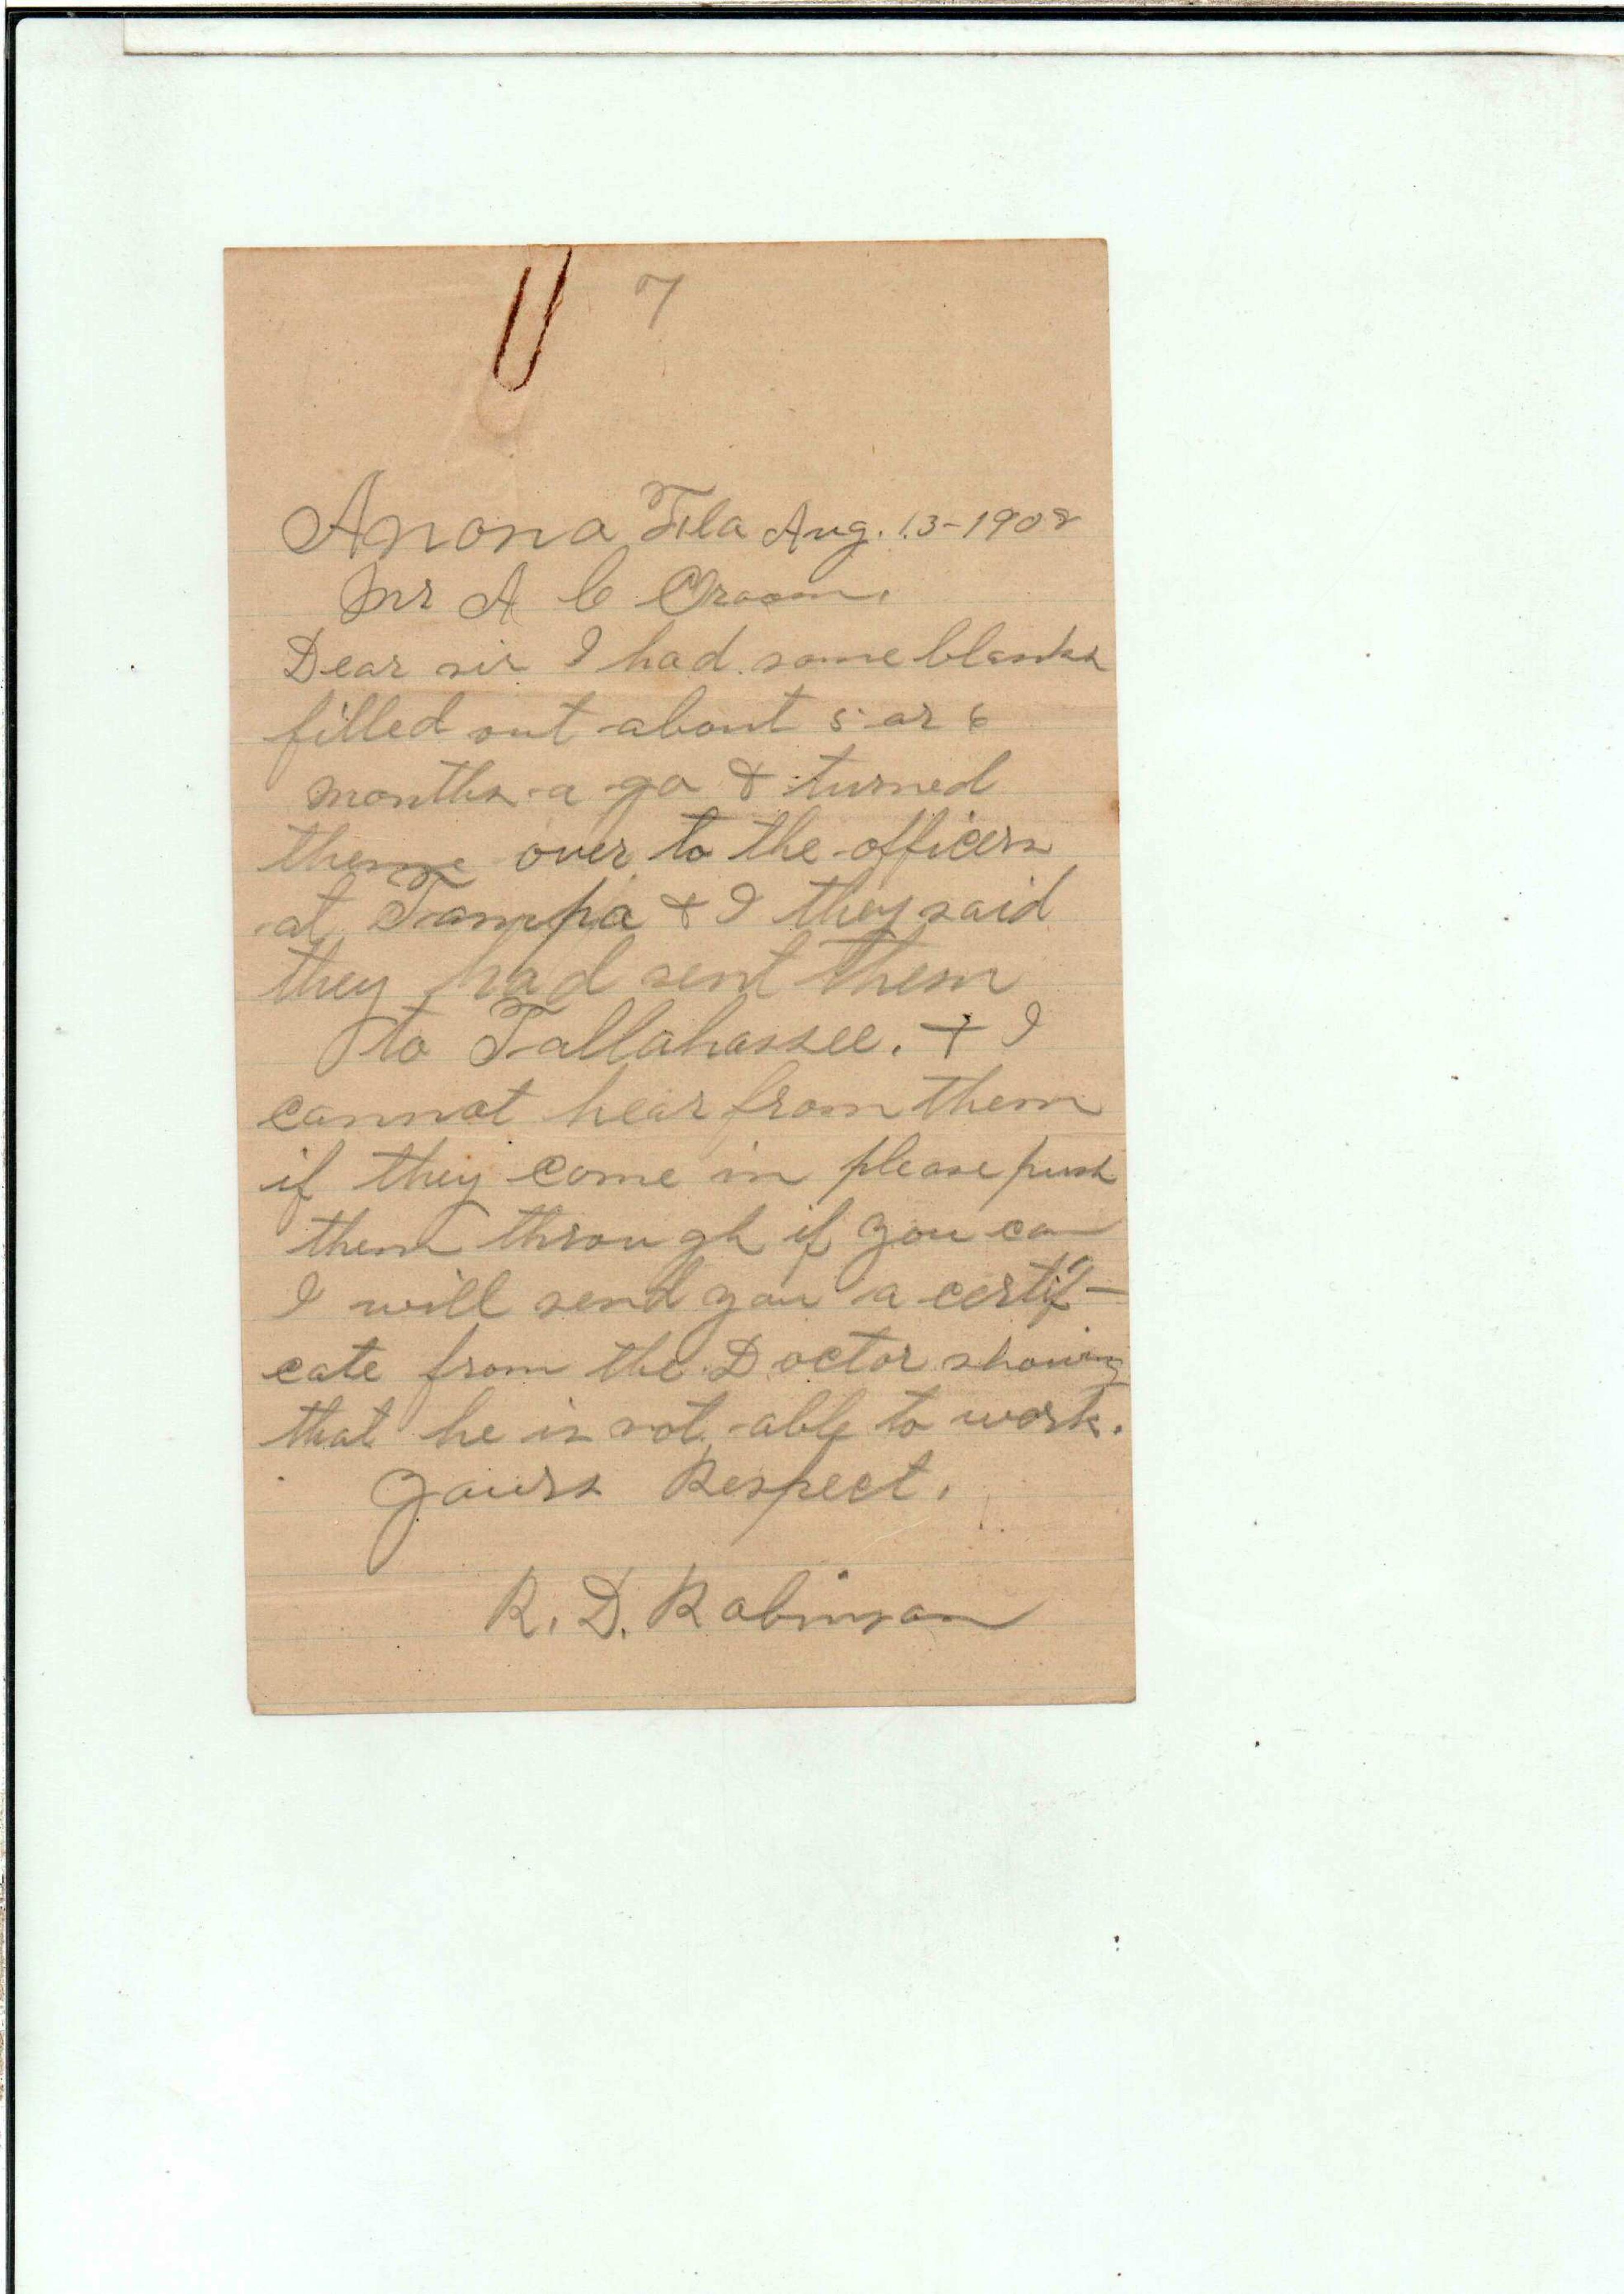 7
Anona Fla Aug. 13-1908
Mr A C Croom.
Dear sir I had some blanks
filled out about 5 or 6
months a go & turned
them over to the officers
at Tampa & I they said
they had sent them
to Tallahassee. & I
cannot hear from them
if they come in please push
them through if you can
I will send you a certifi-
cate from the Doctor showing
that he is not able to work.
Yours Respect.
R. D. Robinson